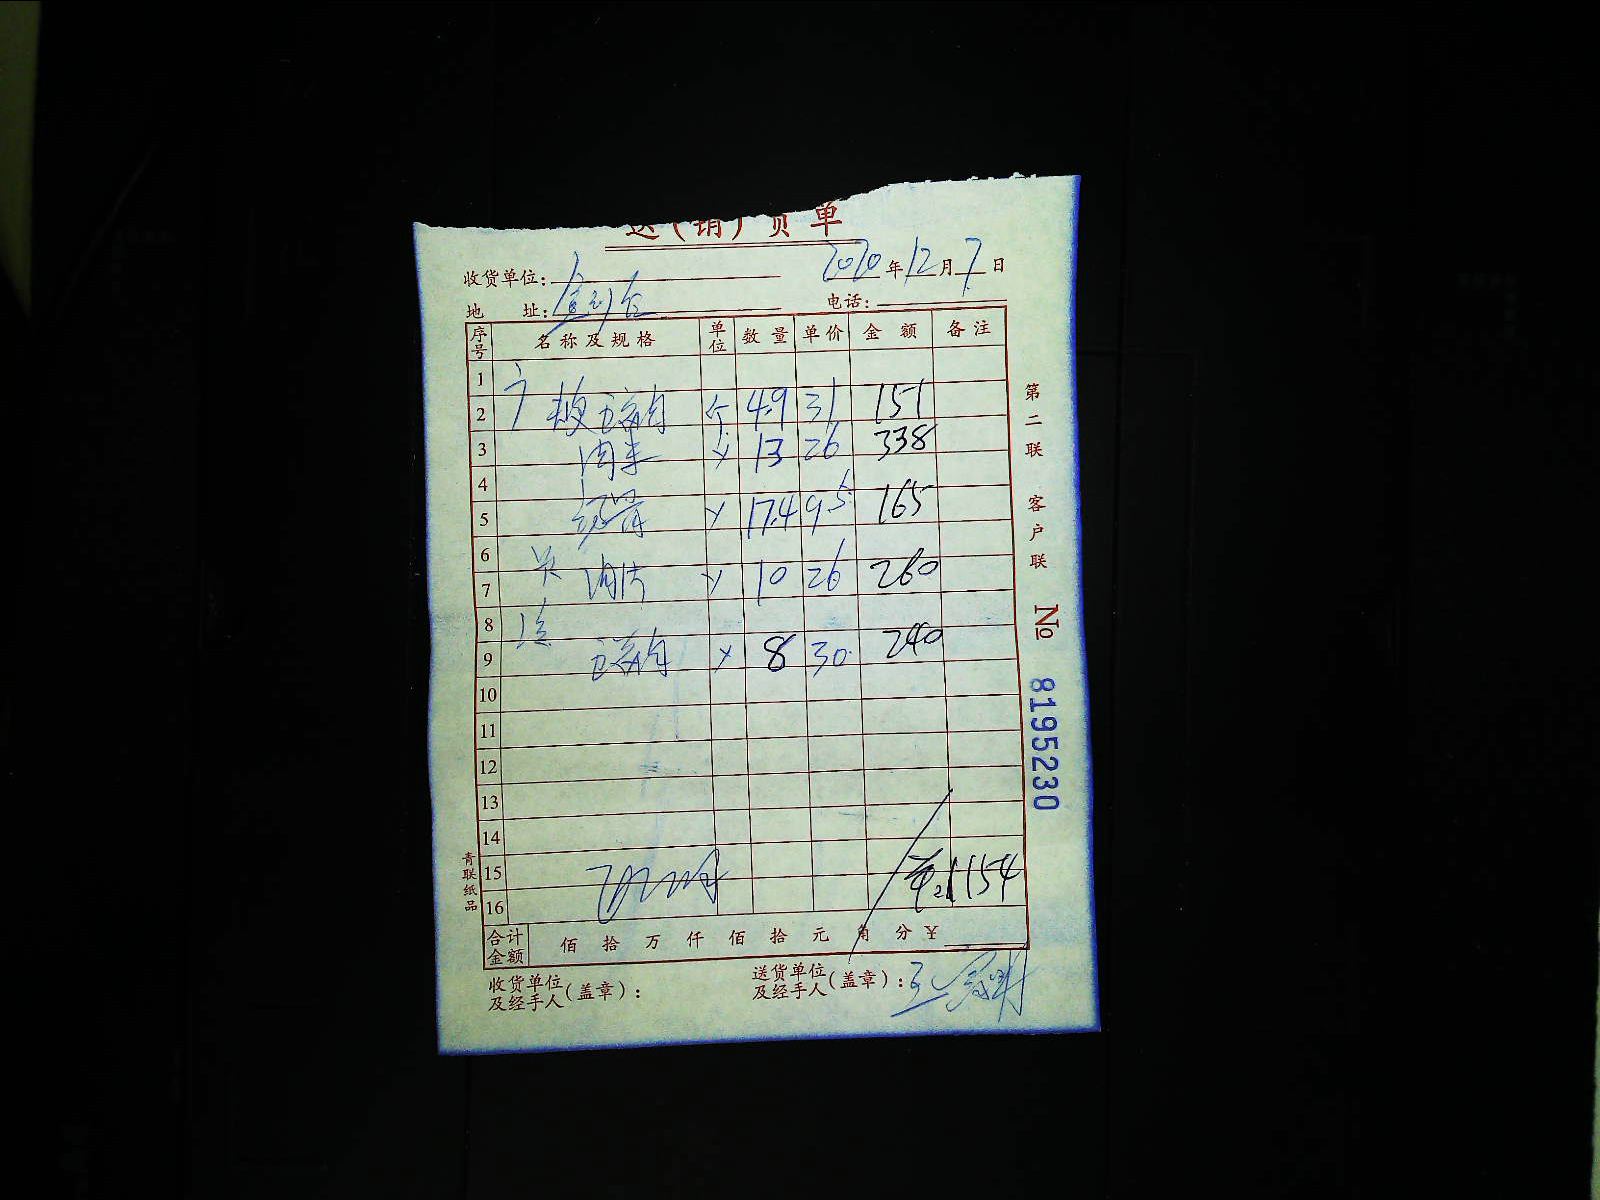 送(销)货单
收货单位: 2020年12月7日
地 址: 电话:
序号 名称及规格 单位 数量 单价 金额 备注
1
2 五花肉 个 4.9 31 151
3 肉末 13 26 338
4
5 17.4 9.5 165
6
7 肉片 10 26 260
8
9 五花肉 8 30 240
10
11
12
13
14
15 1154
16
合计金额 佰 拾 万 仟 佰 拾 元 角 分 ¥
收货单位及经手人(盖章): 送货单位及经手人(盖章):
第二联 客户联 No 8195230
青联纸品